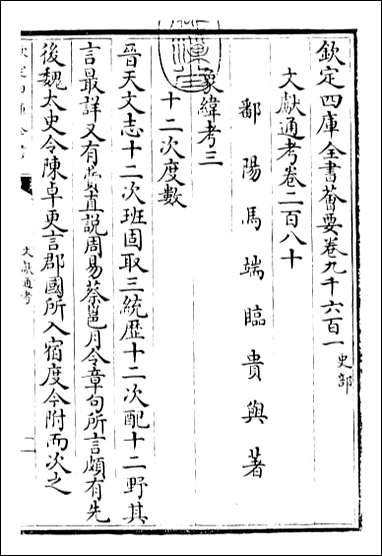 欽定四庫全書薈要卷九千六百一史部
文獻通考卷二百八十
鄱陽馬端臨貴與著
象緯考三
十二次度數
晉天文志十二次班固取三統歷十二次配十二野其
言最詳又有費直説周易蔡邕月令章句所言頗有先
後魏太史令陳卓更言郡國所入宿度今附而次之
文獻通考
一